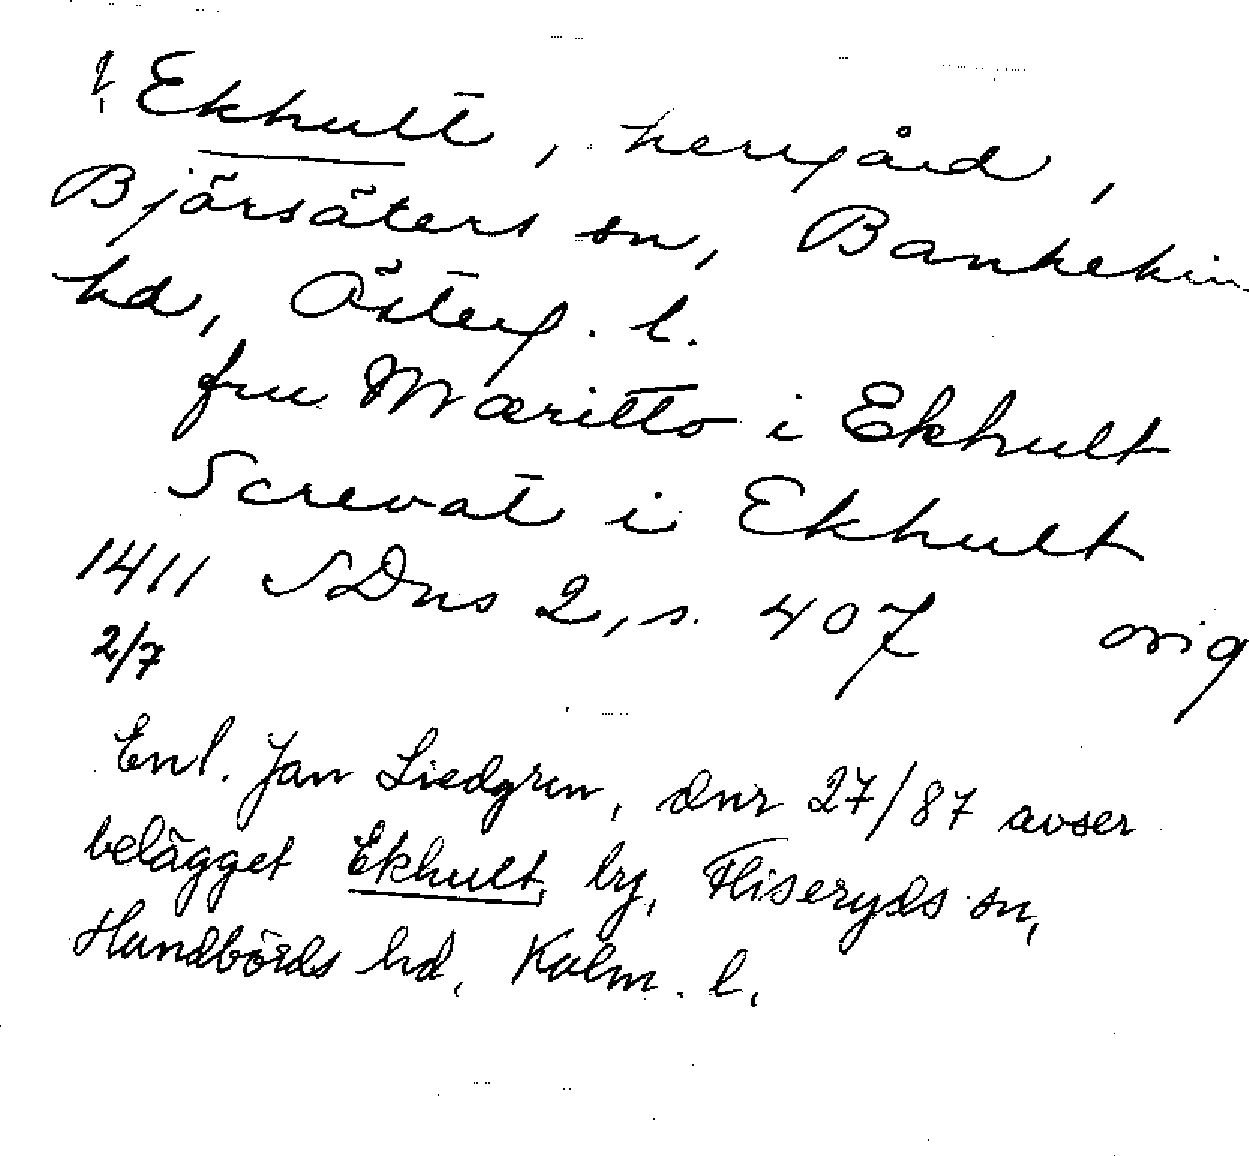 ! Ekhult, herrgård,
Björsäters sn, Bankekin
hd, Österg. l.
fru Mæritto i Ekhult
Screvat i Ekhult
1411 SDns 2, s. 407 orig
2/7
Enl. Jan Liedgren, dnr 27/87 avser
belägget Ekhult, by, Fliseryds sn,
Handbörds hd, Kalm. l.